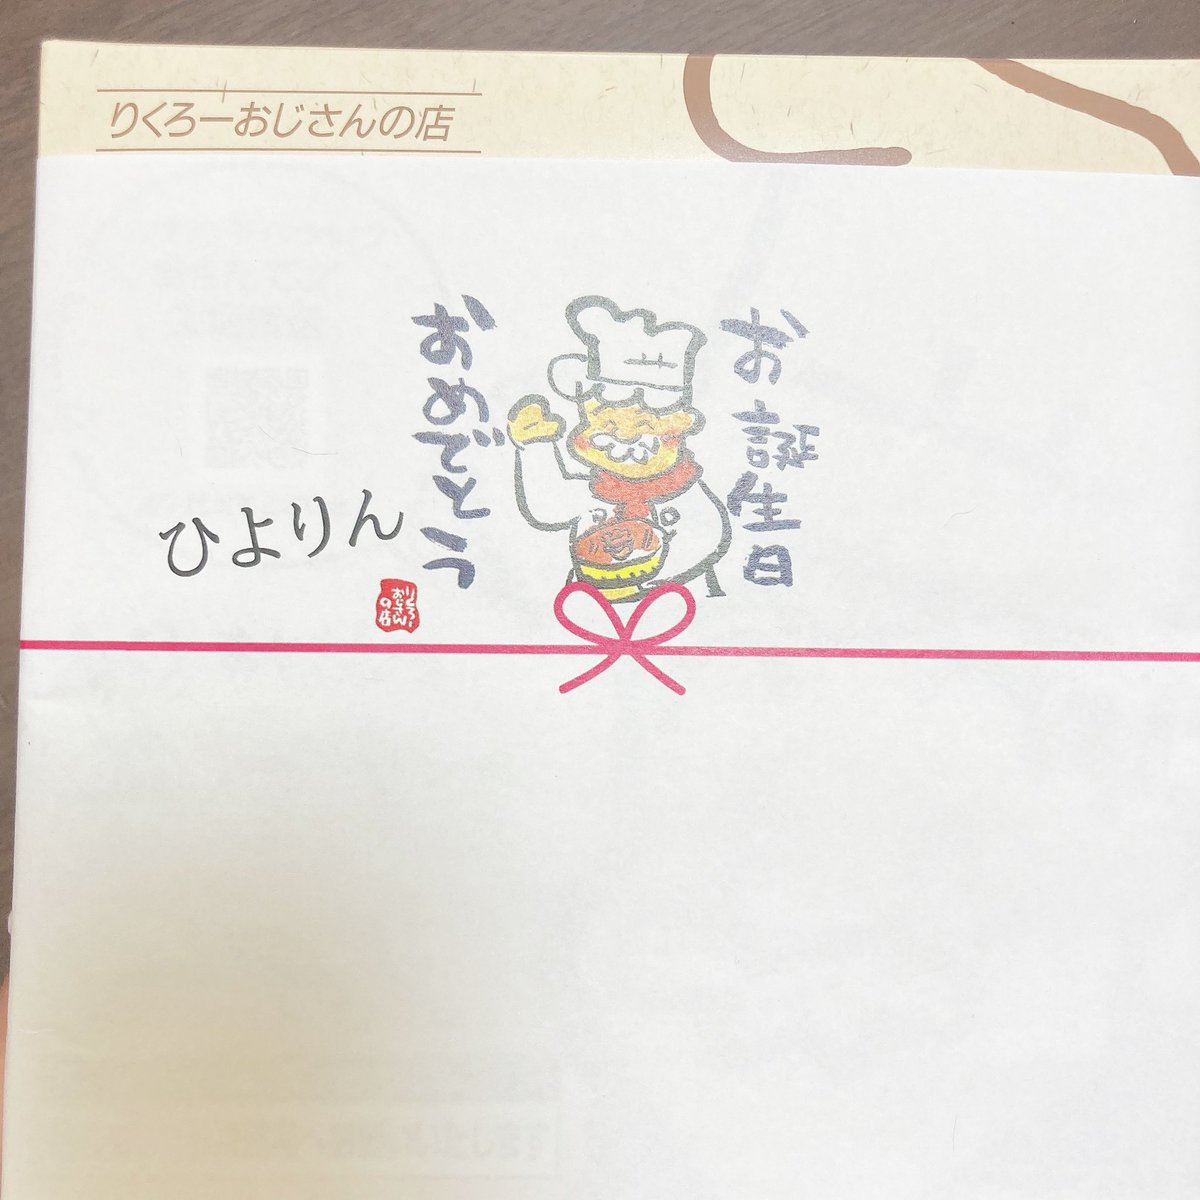 りくろーおじさんの店
お誕生日
おめでとう
ひよりん
りくろー
おじさん
の店